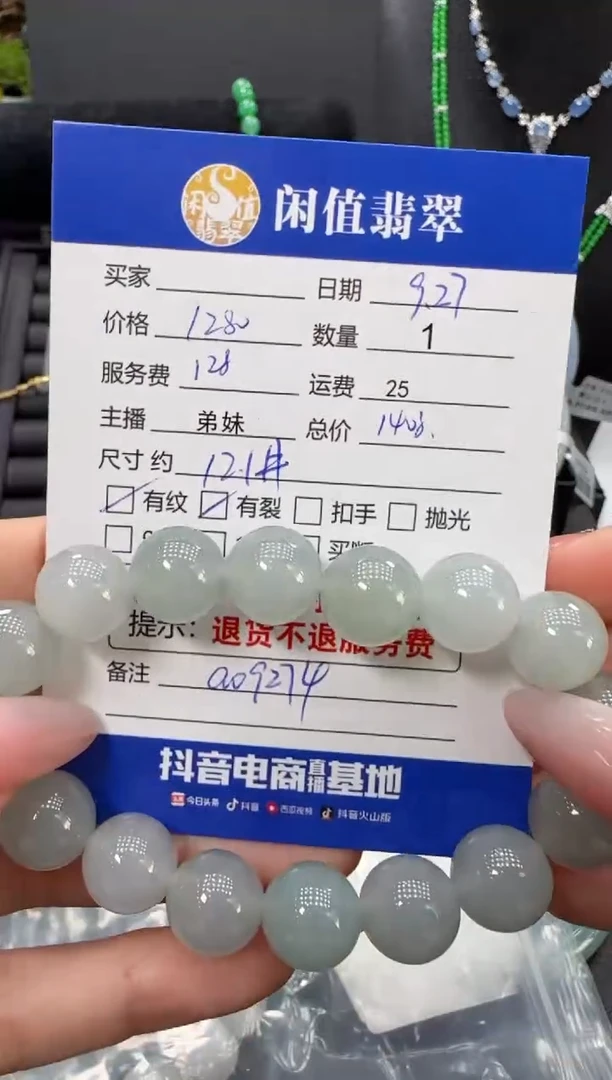 闲值翡翠
闲值翡翠
买家 日期 9.27
价格 1280 数量 1
服务费 128 运费 25
主播 弟妹 总价 1408.
尺寸 约 12.1#
有纹 有裂 扣手 抛光
提示: 退货不退服务费
备注 a09274
抖音电商直播基地
今日头条 抖音 西瓜视频 抖音火山版